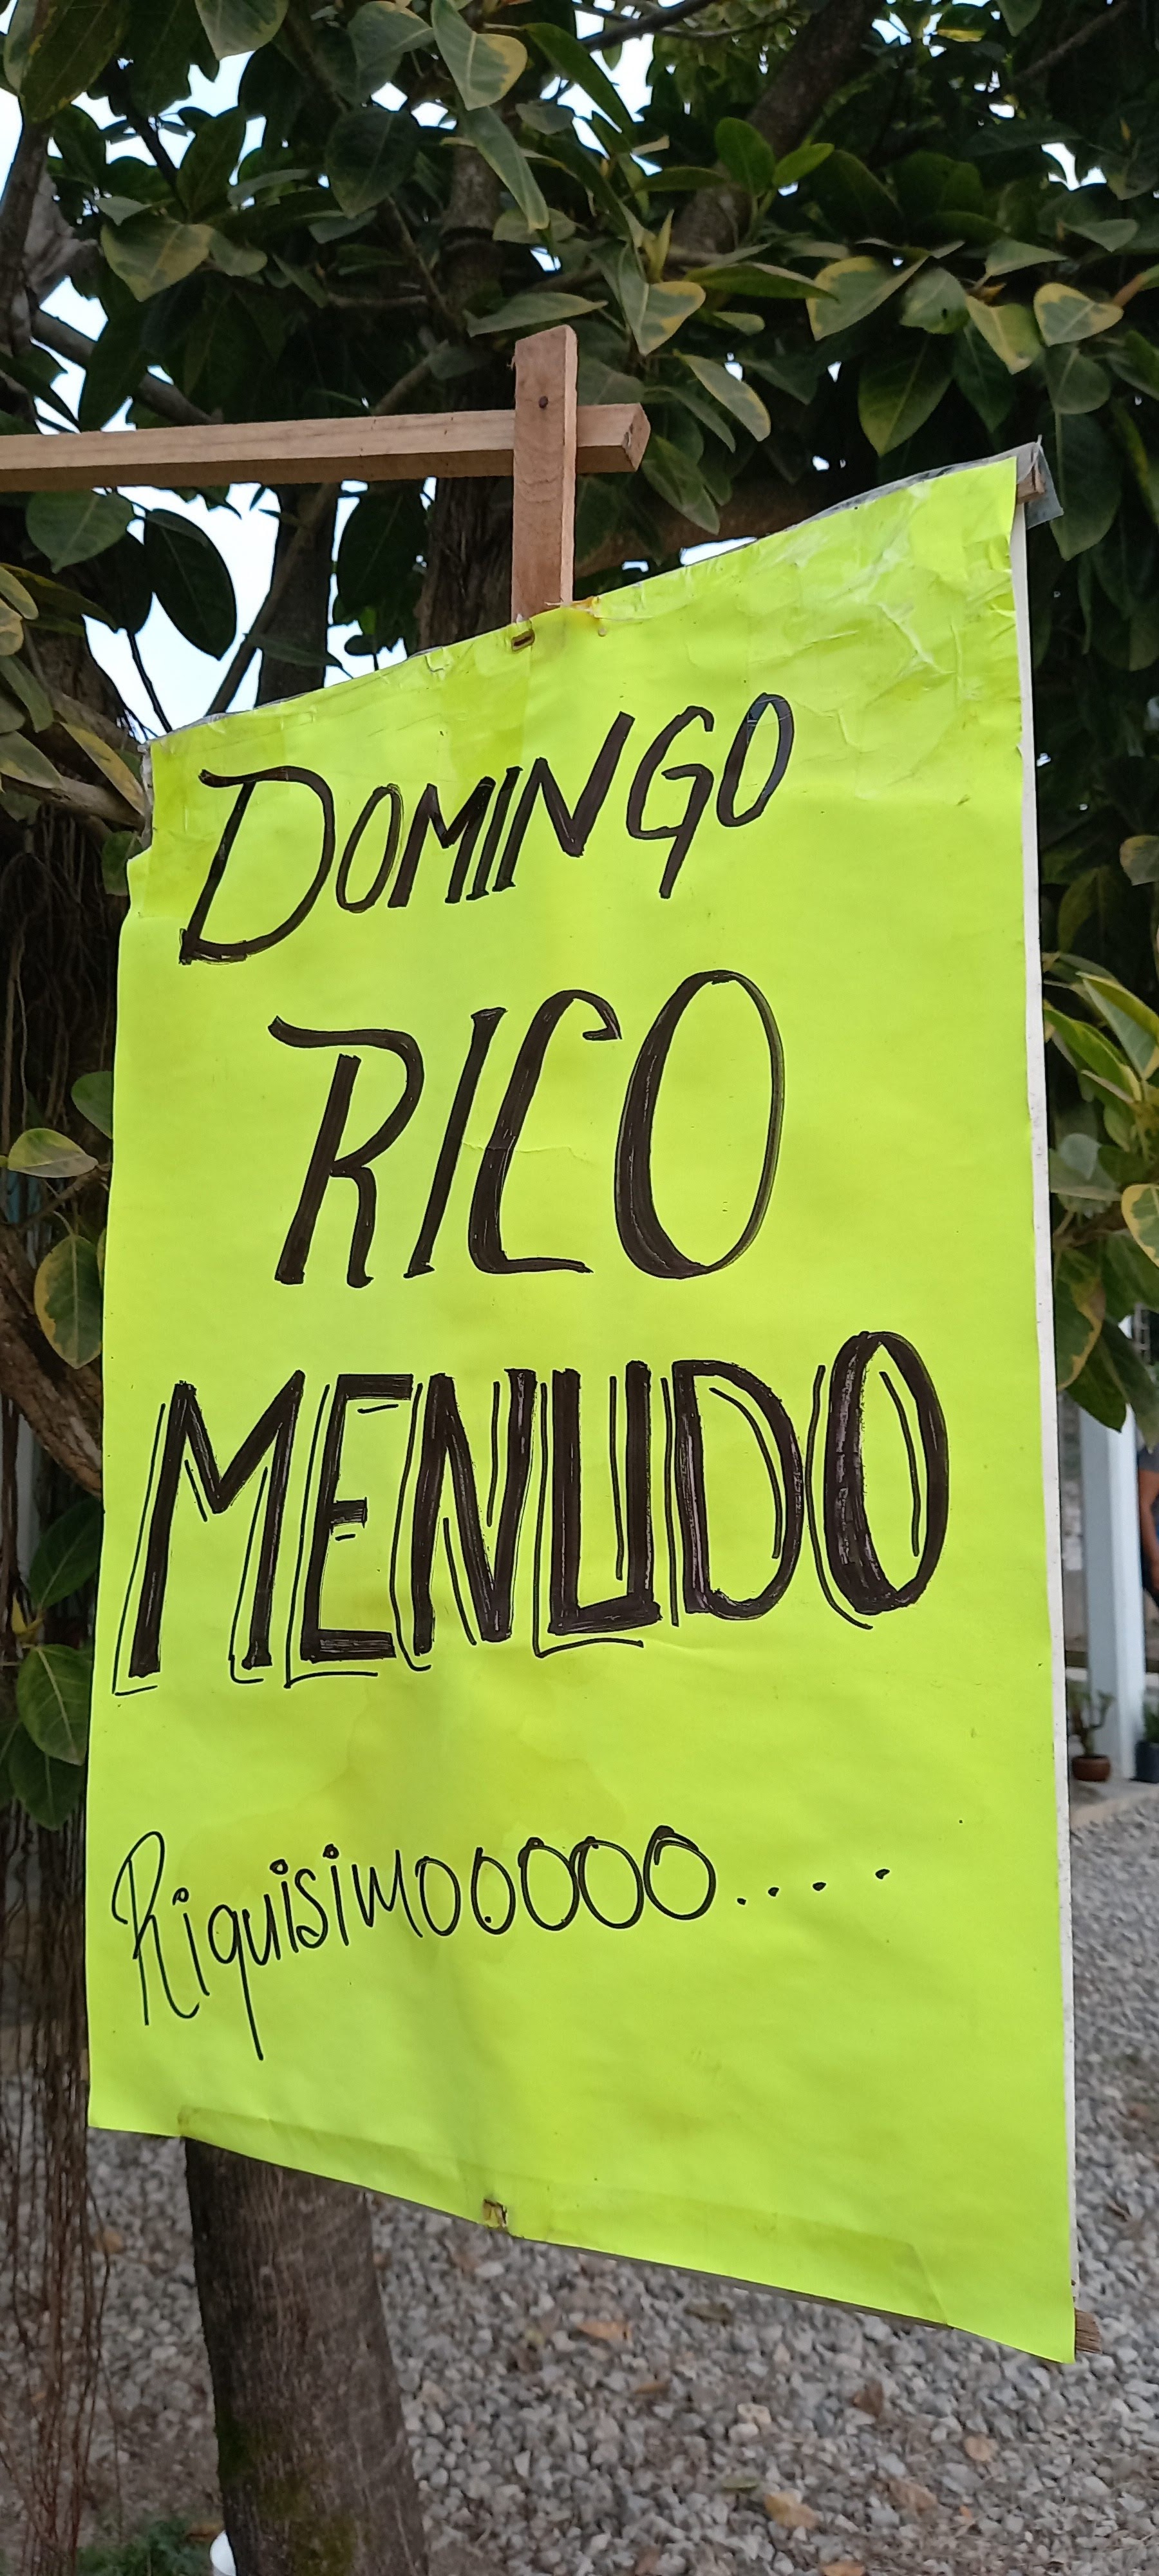 DOMINGO
RICO
MENUDO
Riquisimooooo....